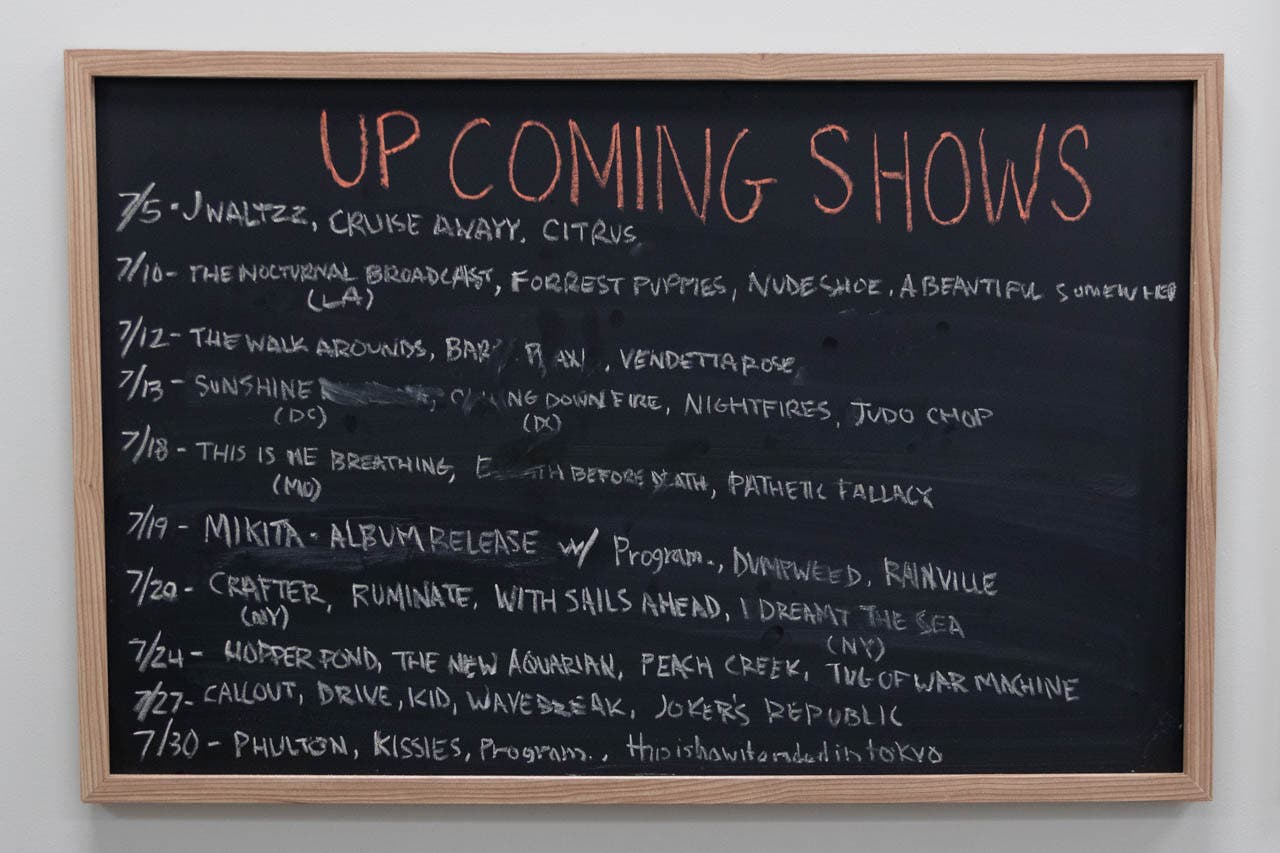 UPCOMING SHOWS
7/5 - JWALTZZ, CRUISE AWAYY, CITRUS,
7/10 - THE NOCTURNAL BROADCAST, FORREST PUPPIES, NUDESHOE, A BEAUTIFUL
(LA)
7/12 - THE WALK AROUNDS, VENDETTA ROSE,
7/13 - SUNSHINE DOWN FIRE, NIGHTFIRES, JUDO CHOP
(DC)
7/18 - THIS IS ME BREATHING, BEFORE DEATH, PATHETIC FALLACY
(MD)
7/19 - MIKITA - ALBUM RELEASE w/ Program., DUMPWEED, RAINVILLE
7/20 - CRAFTER, RUMINATE, WITH SAILS AHEAD, I DREAMT THE SEA
(NY) (NY)
7/24 - HOPPER POND, THE NEW AQUARIAN, PEACH CREEK, TUG OF WAR MACHINE
7/27 - CALLOUT, DRIVE, KID, WAVEBREAK, JOKER'S REPUBLIC
7/30 - PHULTON, KISSIES, Program., thisishowitendedintokyo